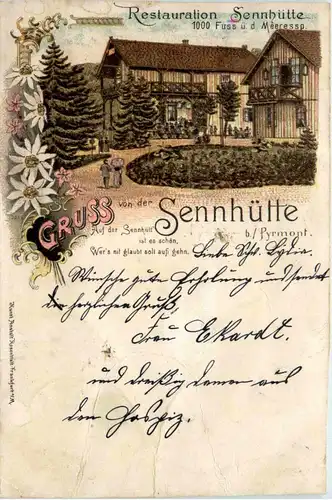 Restauration Sennhütte
1000 Fuss ü. d. Meeressp.
GRUSS von der Sennhütte
b./ Pyrmont.
Auf der Sennhütt'
ist es schön,
Wer's nit glaubt soll auf gehn.
Liebe Schw. Lydia
Wünsche gute Erholung und sendet
herzlichen Gruß,
Frau Ekardt.
und dreißig Damen aus
dem Hospiz.